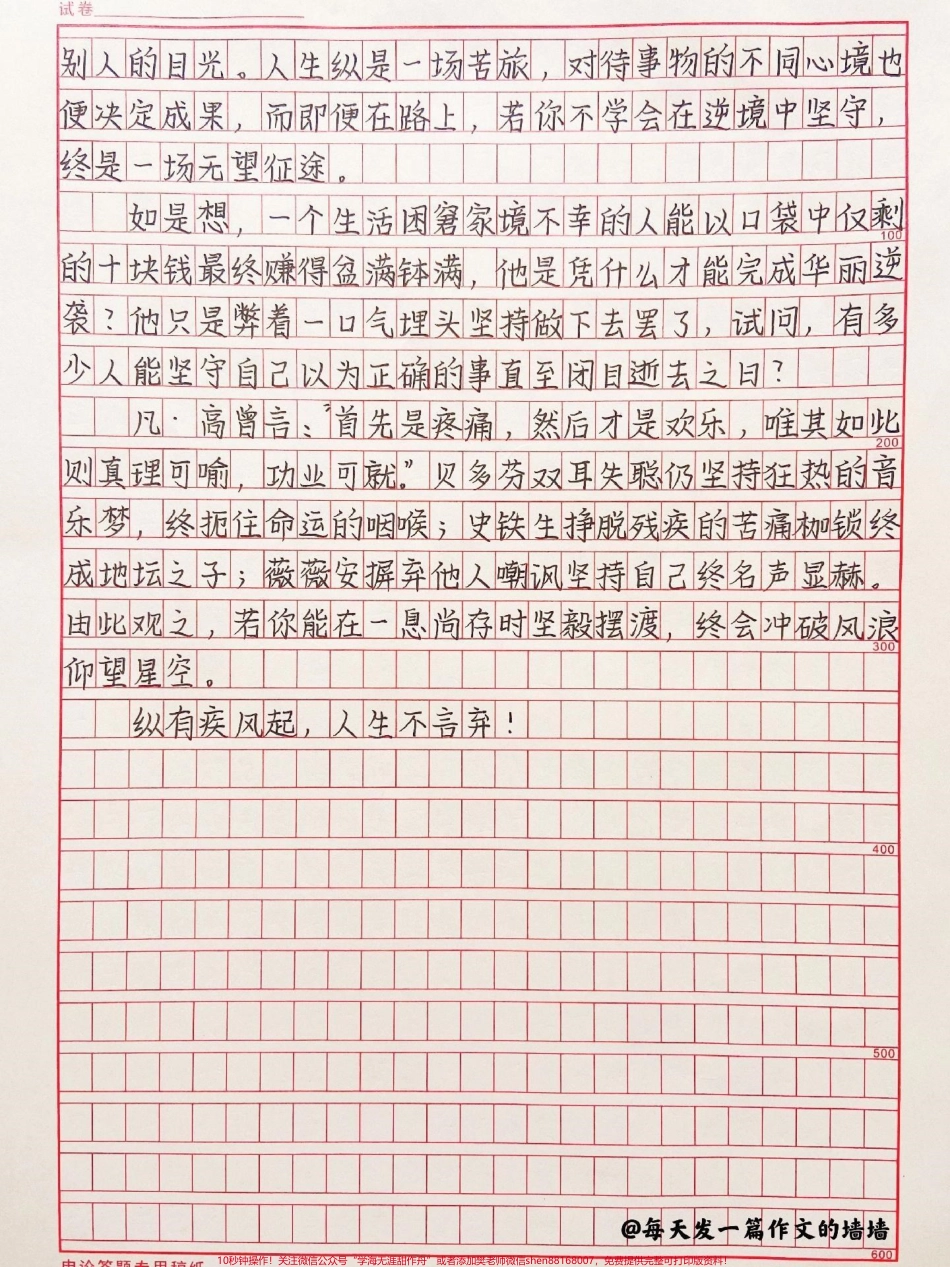 试卷
别人的目光。人生纵是一场苦旅，对待事物的不同心境也
便决定成果，而即便在路上，若你不学会在逆境中坚守，
终是一场无望征途。
如是想，一个生活困窘家境不幸的人能以口袋中仅剩
100
的十块钱最终赚得盆满钵满，他是凭什么才能完成华丽逆
袭？他只是弊着一口气埋头坚持做下去罢了，试问，有多
少人能坚守自己以为正确的事直至闭目逝去之日？
凡·高曾言："首先是疼痛，然后才是欢乐，唯其如此
200
则真理可喻，功业可就。"贝多芬双耳失聪仍坚持狂热的音
乐梦，终扼住命运的咽喉；史铁生挣脱残疾的苦痛枷锁终
成地坛之子；薇薇安摒弃他人嘲讽坚持自己终名声显赫。
由此观之，若你能在一息尚存时坚毅摆渡，终会冲破风浪
300
仰望星空。
纵有疾风起，人生不言弃！
400
500
@每天发一篇作文的墙墙
600
申论答题专用稿纸
10秒钟操作！关注微信公众号"学海无涯甜作舟"或者添加奖老师微信shen88168007，免费提供完整可打印版资料！